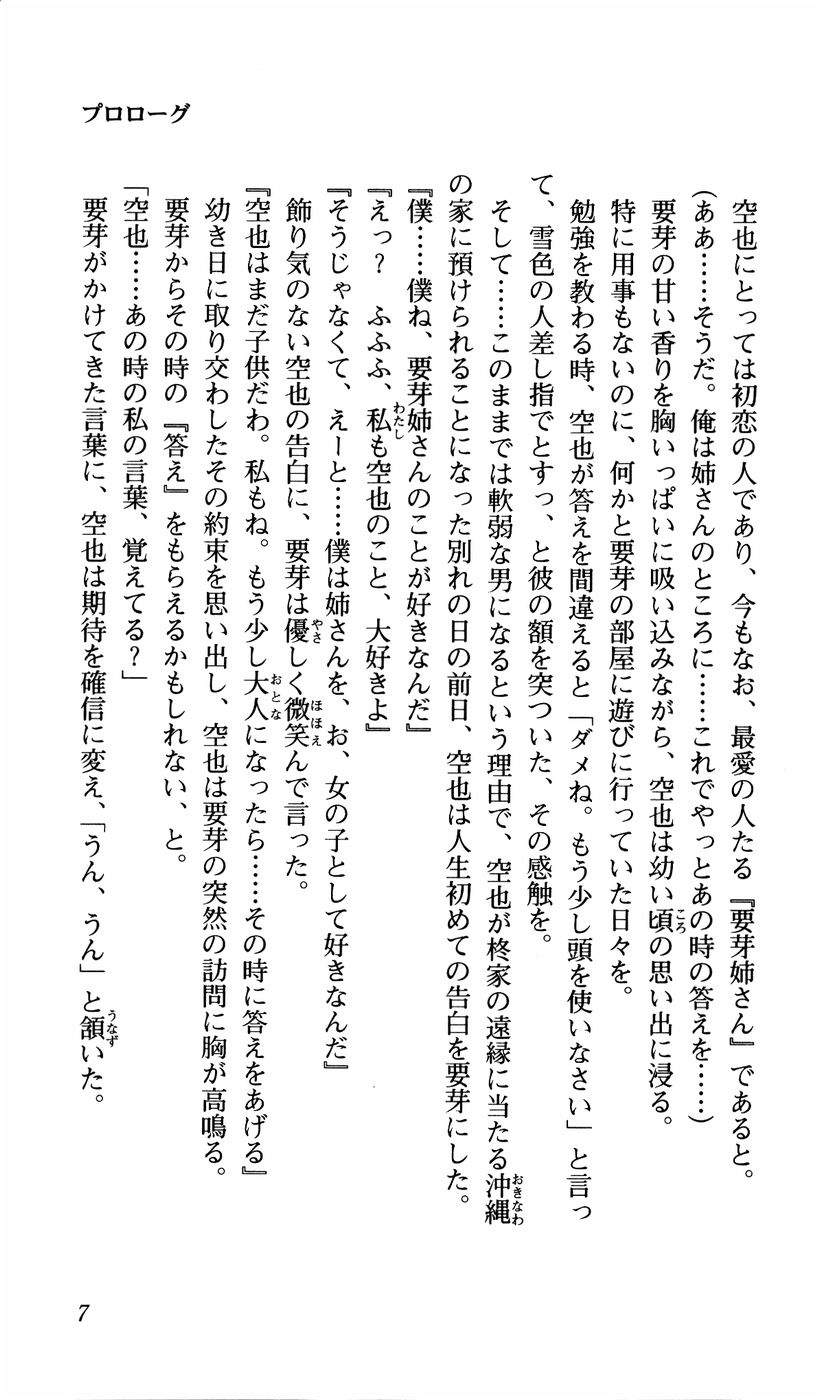 プロローグ
空也にとっては初恋の人であり、今もなお、最愛の人たる『要芽姉さん』であると。
(ああ……そうだ。俺は姉さんのところに……これでやっとあの時の答えを……)
要芽の甘い香りを胸いっぱいに吸い込みながら、空也は幼い頃の思い出に浸る。
特に用事もないのに、何かと要芽の部屋に遊びに行っていた日々を。
勉強を教わる時、空也が答えを間違えると「ダメね。もう少し頭を使いなさい」と言っ
て、雪色の人差し指でとすっ、と彼の額を突ついた、その感触を。
そして……このままでは軟弱な男になるという理由で、空也が柊家の遠縁に当たる沖縄
の家に預けられることになった別れの日の前日、空也は人生初めての告白を要芽にした。
『僕……僕ね、要芽姉さんのことが好きなんだ』
『えっ？　ふふふ、私も空也のこと、大好きよ』
『そうじゃなくて、えーと……僕は姉さんを、お、女の子として好きなんだ』
飾り気のない空也の告白に、要芽は優しく微笑んで言った。
『空也はまだ子供だわ。私もね。もう少し大人になったら……その時に答えをあげる』
幼き日に取り交わしたその約束を思い出し、空也は要芽の突然の訪問に胸が高鳴る。
要芽からその時の『答え』をもらえるかもしれない、と。
「空也……あの時の私の言葉、覚えてる？」
要芽がかけてきた言葉に、空也は期待を確信に変え、「うん、うん」と頷いた。
7